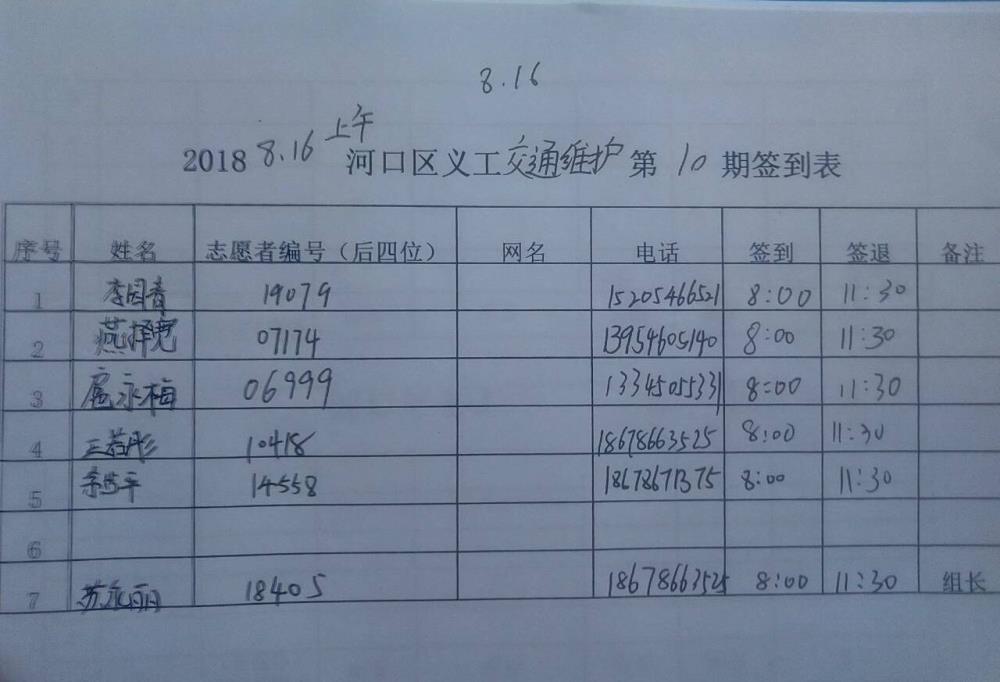 8.16
2018 8.16 上午 河口区义工交通维护第 10 期签到表
序号 姓名 志愿者编号（后四位） 网名 电话 签到 签退 备注
1 李因青 19079 15205466521 8:00 11:30
2 燕择宽 07174 13954605140 8:00 11:30
3 扈永梅 06999 13345055331 8:00 11:30
4 王若彤 10418 18678663525 8:00 11:30
5 14558 18678671375 8:00 11:30
6
7 苏永丽 18405 18678663525 8:00 11:30 组长